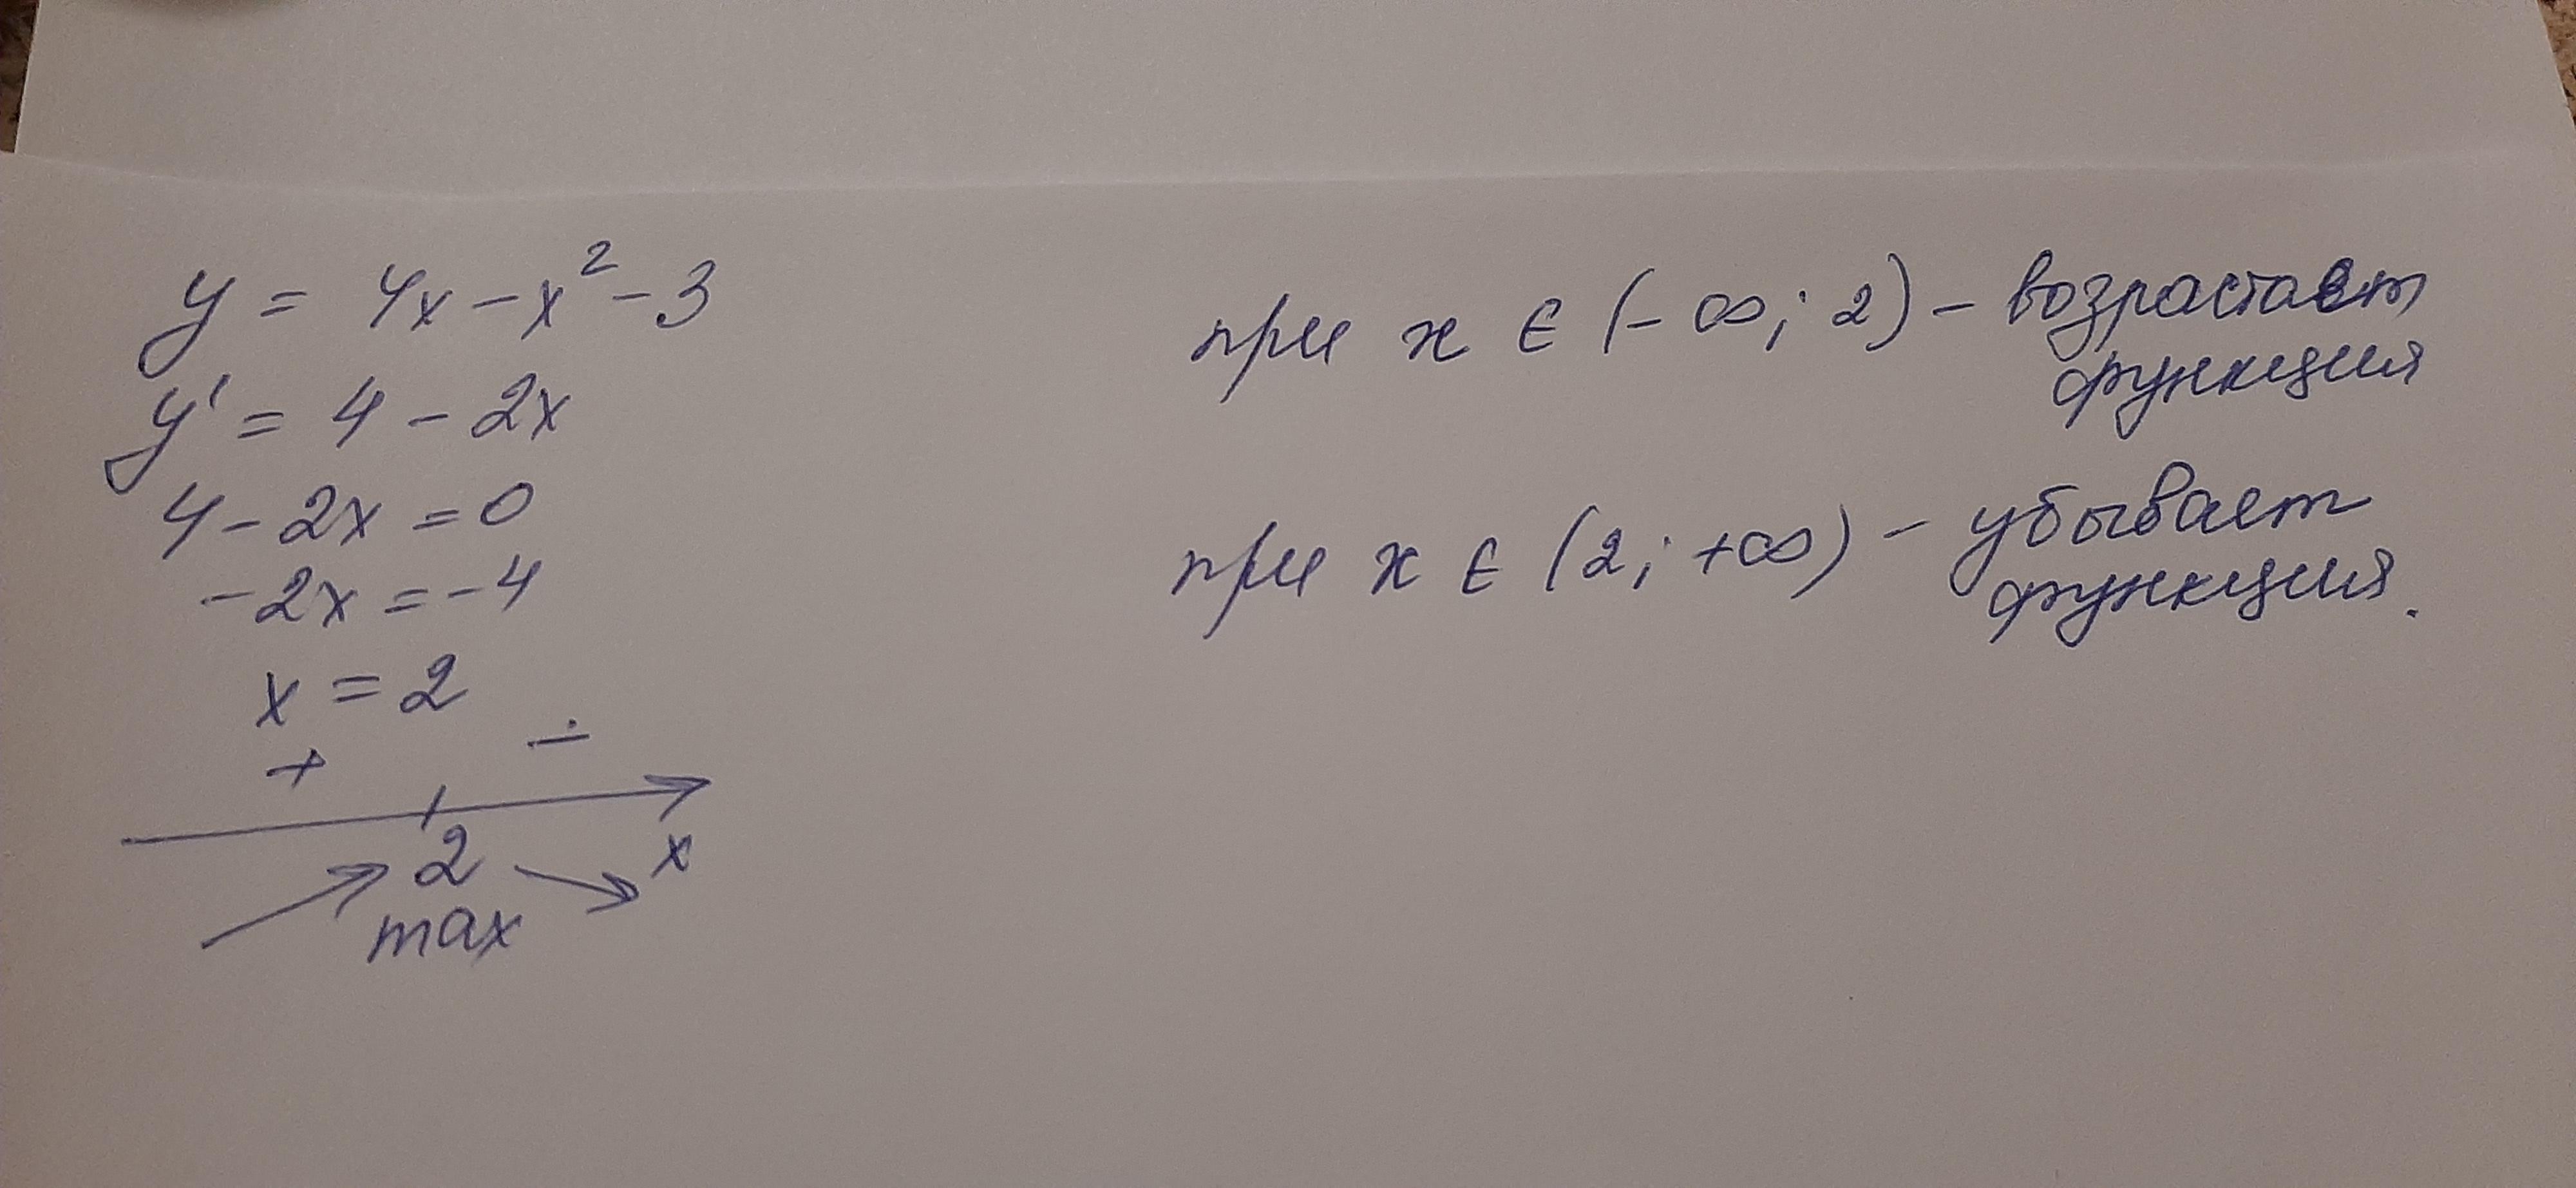 y = 4x - x² - 3
y' = 4 - 2x
4 - 2x = 0
-2x = -4
x = 2
+ -
2 x
max
при x ∈ (-∞; 2) - возрастает
функция
при x ∈ (2; +∞) - убывает
функция.